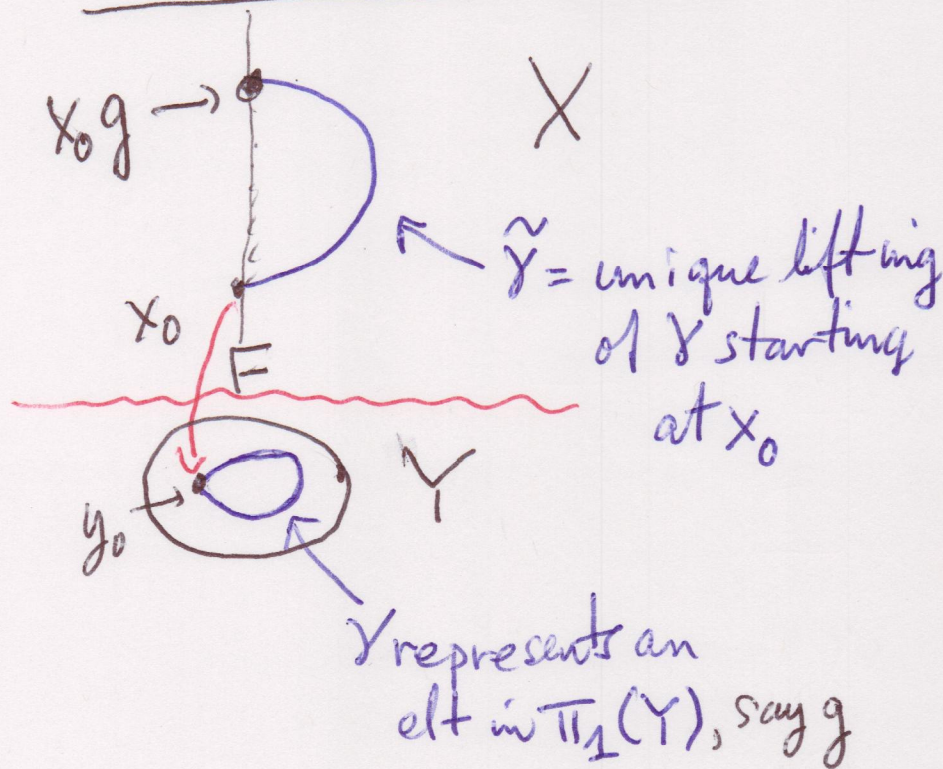 x₀g →
X
γ̃ = unique lifting
of γ starting
at x₀
x₀
F
Y
y₀
γ represents an
elt in π₁(Y), say g